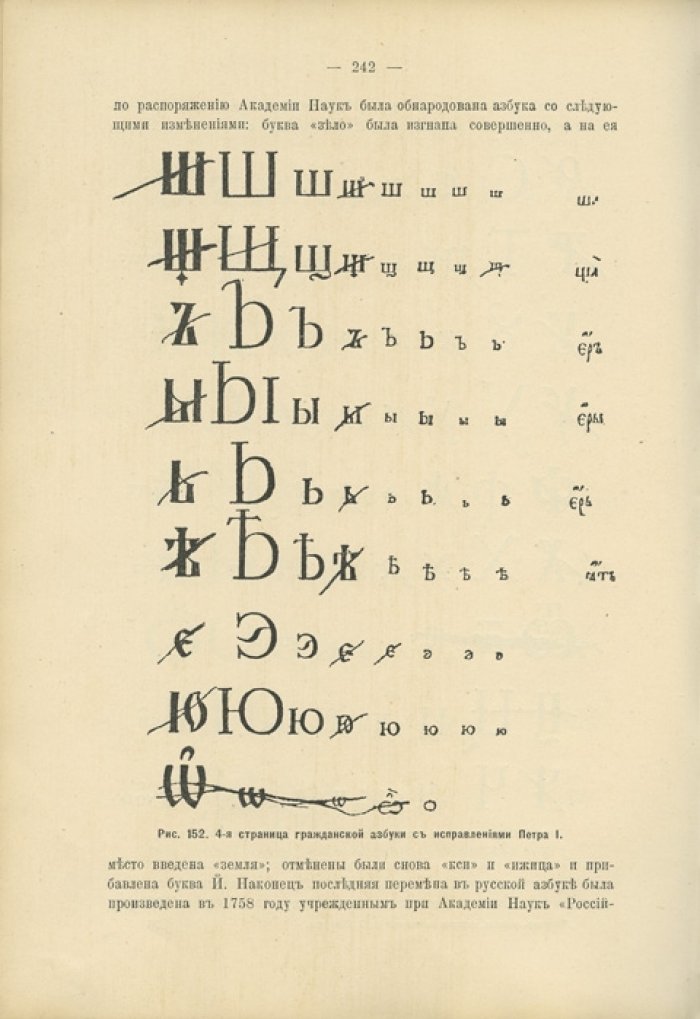 — 242 —
по распоряженію Академіи Наукъ была обнародована азбука со слѣдую-
щими измѣненіями: буква «зѣло» была изгнана совершенно, а на ея
Ш Ш ш ш ш ш ш ш
Щ Щ щ щ щ щ щ щ
Ъ Ъ Ъ ъ Ъ Ь ъ ъ єръ
Ы Ы ы ы ы ы ы ы єры
Ь Ь ь ь ь ь ь ь єрь
Ѣ Ѣ ѣ ѣ ѣ ѣ ѣ ѣ ять
є Э э є є э э э
Ю Ю ю ю ю ю ю ю
Ѿ ѡ ѡ о
Рис. 152. 4-я страница гражданской азбуки съ исправленіями Петра I.
мѣсто введена «земля»; отмѣнены были снова «кси» и «ижица» и при-
бавлена буква Й. Наконецъ послѣдняя перемѣна въ русской азбукѣ была
произведена въ 1758 году учрежденнымъ при Академіи Наукъ «Россій-